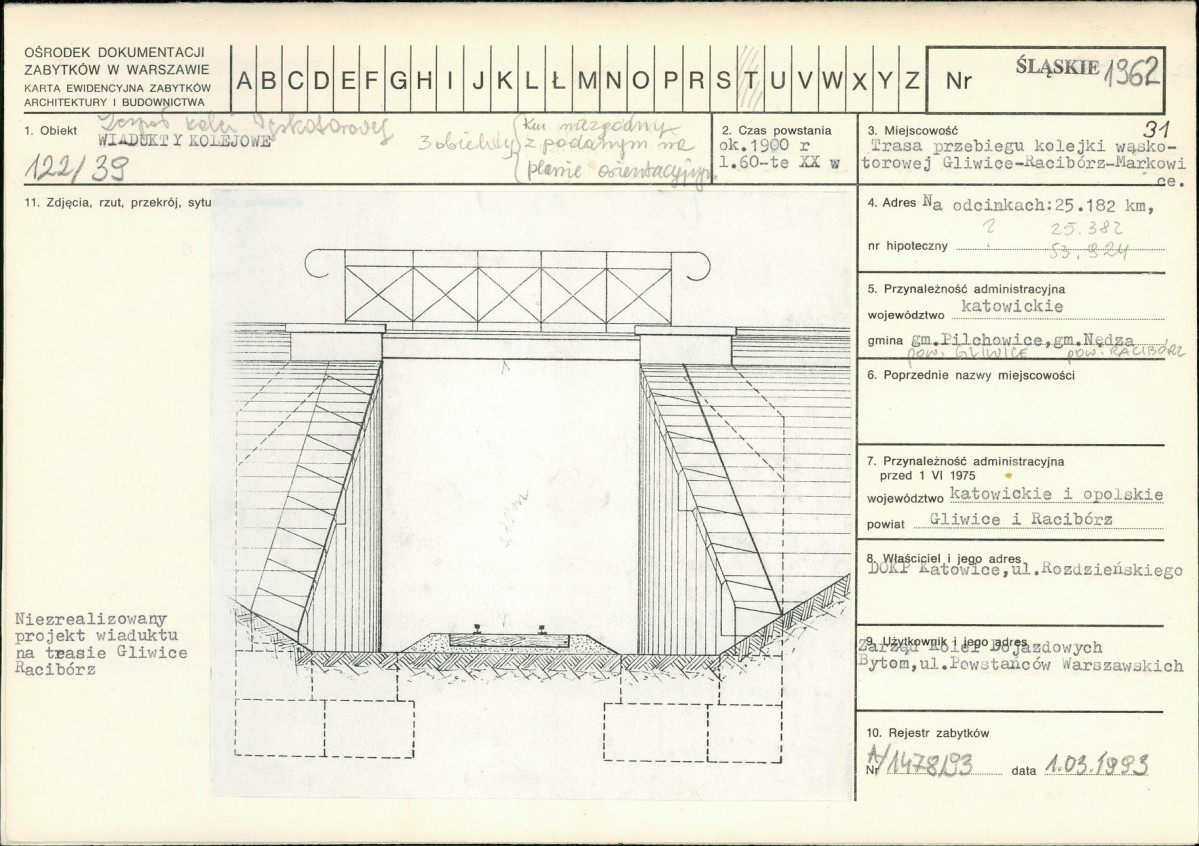 OŚRODEK DOKUMENTACJI
ZABYTKÓW W WARSZAWIE
KARTA EWIDENCYJNA ZABYTKÓW
ARCHITEKTURY I BUDOWNICTWA
A B C D E F G H I J K L Ł M N O P R S T U V W X Y Z
Nr
ŚLĄSKIE 1962
1. Obiekt
Zespół kolei
WIADUKTY KOLEJOWE
122/39
3 obiekty
km niezgodny
z podanym na
planie orientacyjnym
2. Czas powstania
ok.1900 r
l.60-te XX w
3. Miejscowość
31
Trasa przebiegu kolejki wąsko-
torowej Gliwice-Racibórz-Markowi
ce.
11. Zdjęcia, rzut, przekrój, sytu
4. Adres Na odcinkach:25.182 km,
? 25.382
nr hipoteczny
53.924
5. Przynależność administracyjna
województwo katowickie
gmina gm.Pilchowice,gm.Nędza
pow. GLIWICE pow. RACIBÓRZ
6. Poprzednie nazwy miejscowości
7. Przynależność administracyjna
przed 1 VI 1975
województwo katowickie i opolskie
powiat Gliwice i Racibórz
8. Właściciel i jego adres
DOKP Katowice,ul.Rozdzieńskiego
9. Użytkownik i jego adres
Zarząd Kolei Dojazdowych
Bytom,ul.Powstańców Warszawskich
10. Rejestr zabytków
Nr A/1478/93 data 1.03.1993
Niezrealizowany
projekt wiaduktu
na trasie Gliwice
Racibórz